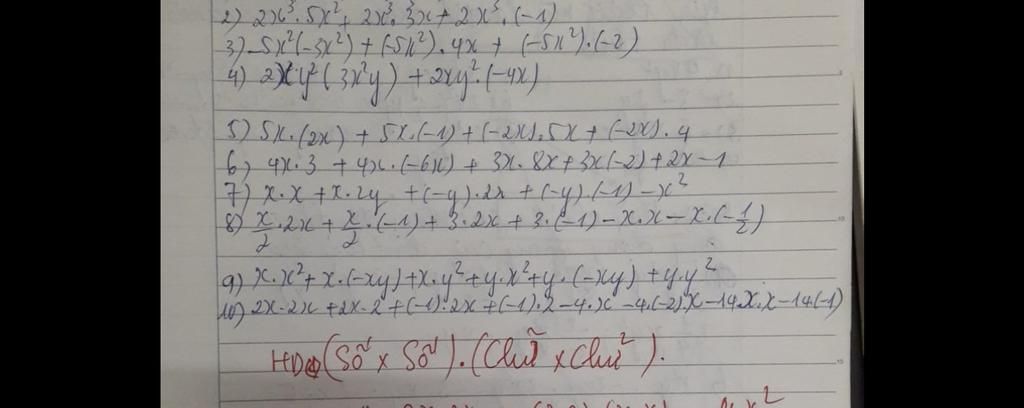 2) 2x³.5x² + 2x³.3x + 2x³.(-1)
3) -5x²(-3x²) + (-5x²).4x + (-5x²).(-2)
4) 2xy²(3x²y) + 2xy².(-4x)
5) 5x.(2x) + 5x.(-1) + (-2x).5x + (-2x).4
6) 4x.3 + 4x.(-6x) + 3x.8x + 3x(-2) + 2x - 1
7) x.x + x.2y + (-y).2x + (-y).(-1) - x²
8) x/2.2x + x/2.(-1) + 3.2x + 3.(-1) - x.x - x.(-1/2)
9) x.x² + x.(-xy) + x.y² + y.x² + y.(-xy) + y.y²
10) 2x.2x + 2x.2 + (-1).2x + (-1).2 - 4.x - 4.(-2)x - 14x.x - 14(-1)
HD (Số x Số).(Chữ x Chữ).